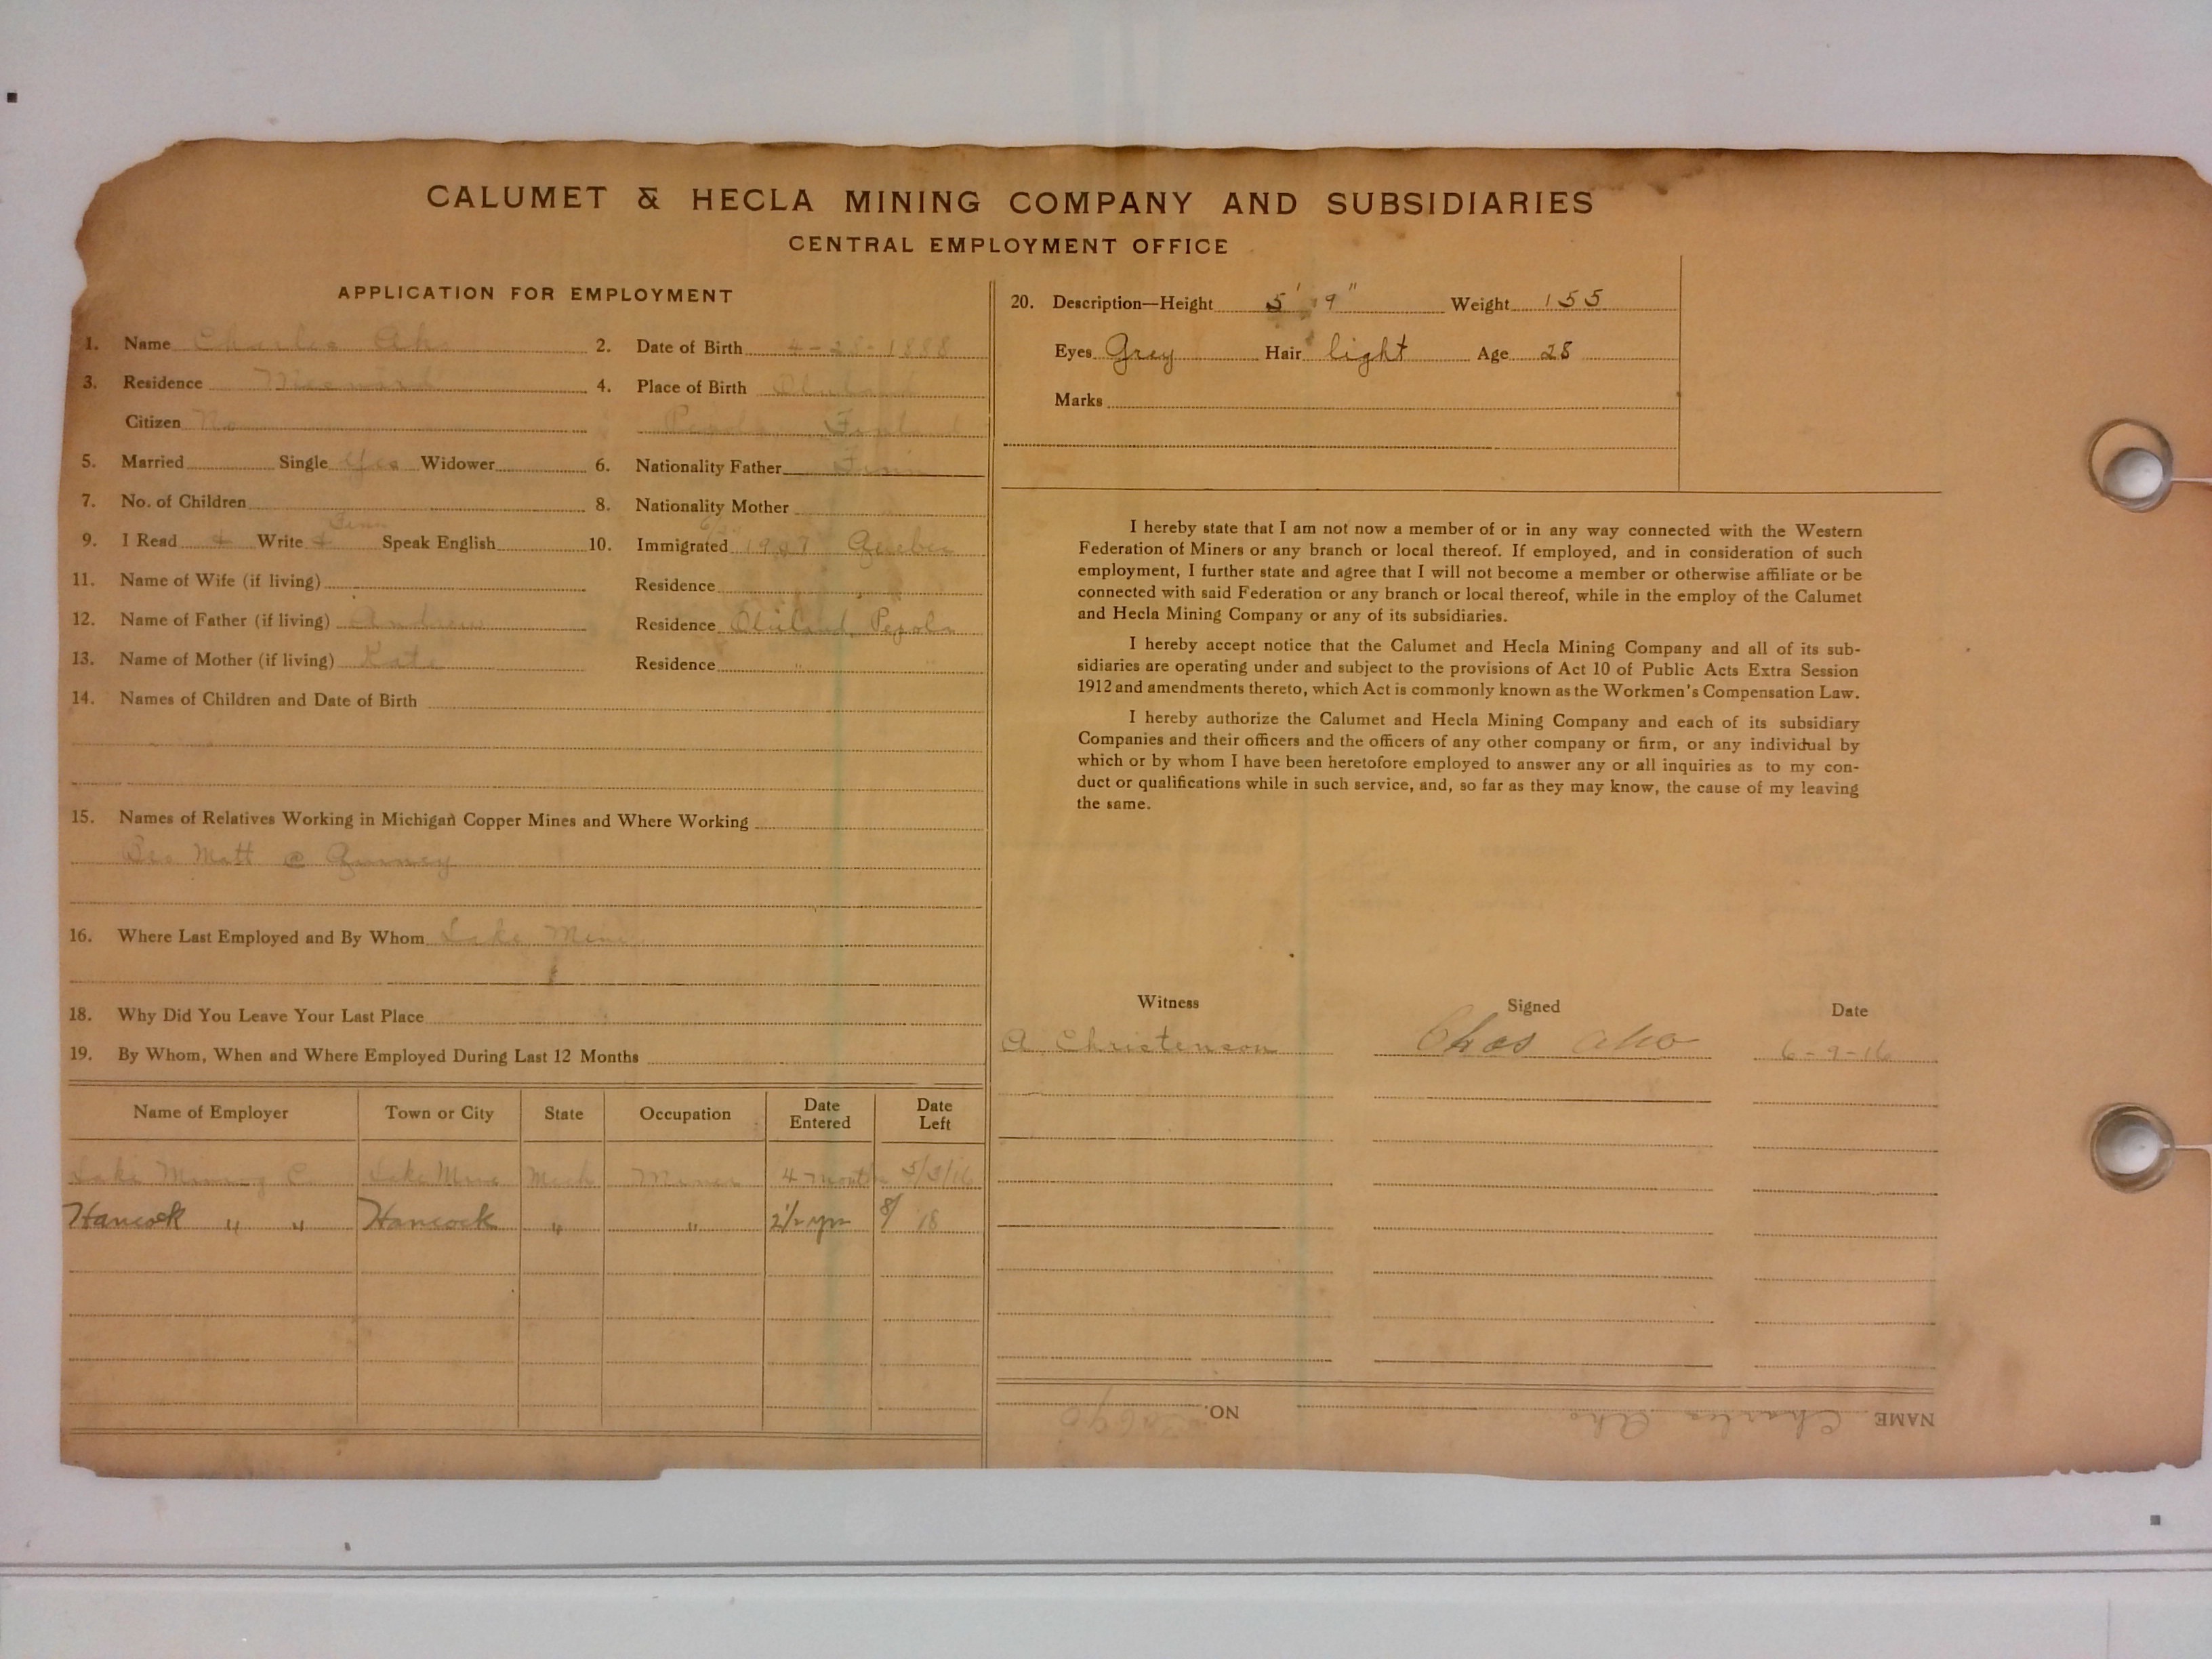 CALUMET & HECLA MINING COMPANY AND SUBSIDIARIES
CENTRAL EMPLOYMENT OFFICE
APPLICATION FOR EMPLOYMENT
1. Name Charlie Aho
2. Date of Birth 4-28-1888
3. Residence
4. Place of Birth
Citizen No
Finland
5. Married Single Yes Widower
6. Nationality Father Finn
7. No. of Children
8. Nationality Mother "
Finn
9. I Read + Write + Speak English
10. Immigrated 1907 Quebec
11. Name of Wife (if living) Residence
12. Name of Father (if living) Andrew Residence
13. Name of Mother (if living) Kate Residence " "
14. Names of Children and Date of Birth
15. Names of Relatives Working in Michigan Copper Mines and Where Working
Matt @ Quincy
16. Where Last Employed and By Whom Lake Mine
18. Why Did You Leave Your Last Place
19. By Whom, When and Where Employed During Last 12 Months
Name of Employer Town or City State Occupation Date Entered Date Left
Lake Mining C. Lake Mine Mich Miner 4 months 5/3/16
Hancock " " Hancock " " 2½ yrs 8/18
20. Description—Height 5' 9" Weight 155
Eyes Grey Hair light Age 28
Marks
I hereby state that I am not now a member of or in any way connected with the Western
Federation of Miners or any branch or local thereof. If employed, and in consideration of such
employment, I further state and agree that I will not become a member or otherwise affiliate or be
connected with said Federation or any branch or local thereof, while in the employ of the Calumet
and Hecla Mining Company or any of its subsidiaries.
I hereby accept notice that the Calumet and Hecla Mining Company and all of its sub-
sidiaries are operating under and subject to the provisions of Act 10 of Public Acts Extra Session
1912 and amendments thereto, which Act is commonly known as the Workmen's Compensation Law.
I hereby authorize the Calumet and Hecla Mining Company and each of its subsidiary
Companies and their officers and the officers of any other company or firm, or any individual by
which or by whom I have been heretofore employed to answer any or all inquiries as to my con-
duct or qualifications while in such service, and, so far as they may know, the cause of my leaving
the same.
Witness Signed Date
A Christenson Chas Aho 6-9-16
NAME Charlie Aho NO.